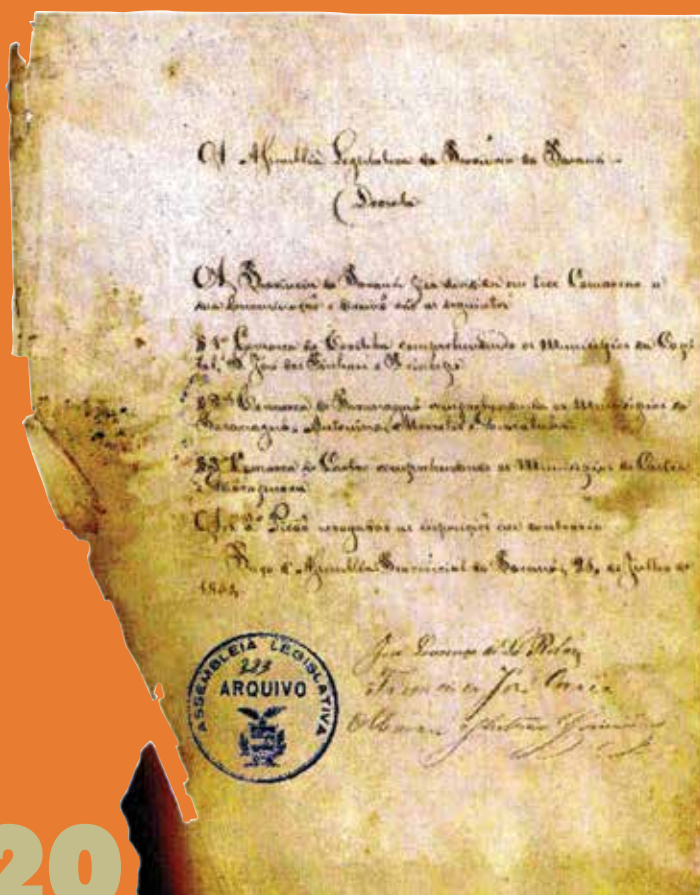 A Assemblêa Legislativa da Provincia do Paraná
Decreta
A Provincia do Paraná fica dividida em tres Comarcas a
sua denominação e são as seguintes
§ 1º Comarca de comprehendendo os Municipios da Capi
tal, S. José dos Pinhaes e Principe
§ 2ª Comarca de Paranaguá comprehendendo os Municipios de
Paranaguá, Antonina, Morretes e
§ 3ª Comarca de Castro comprehendendo os Municipios de Castro
e Guarapuava
Art 2º Ficão revogadas as disposições em contrario
Paço d'Assemblêa Provincial do Paraná, de Julho de
Francisco José
ASSEMBLEIA LEGISLATIVA
223
ARQUIVO
20